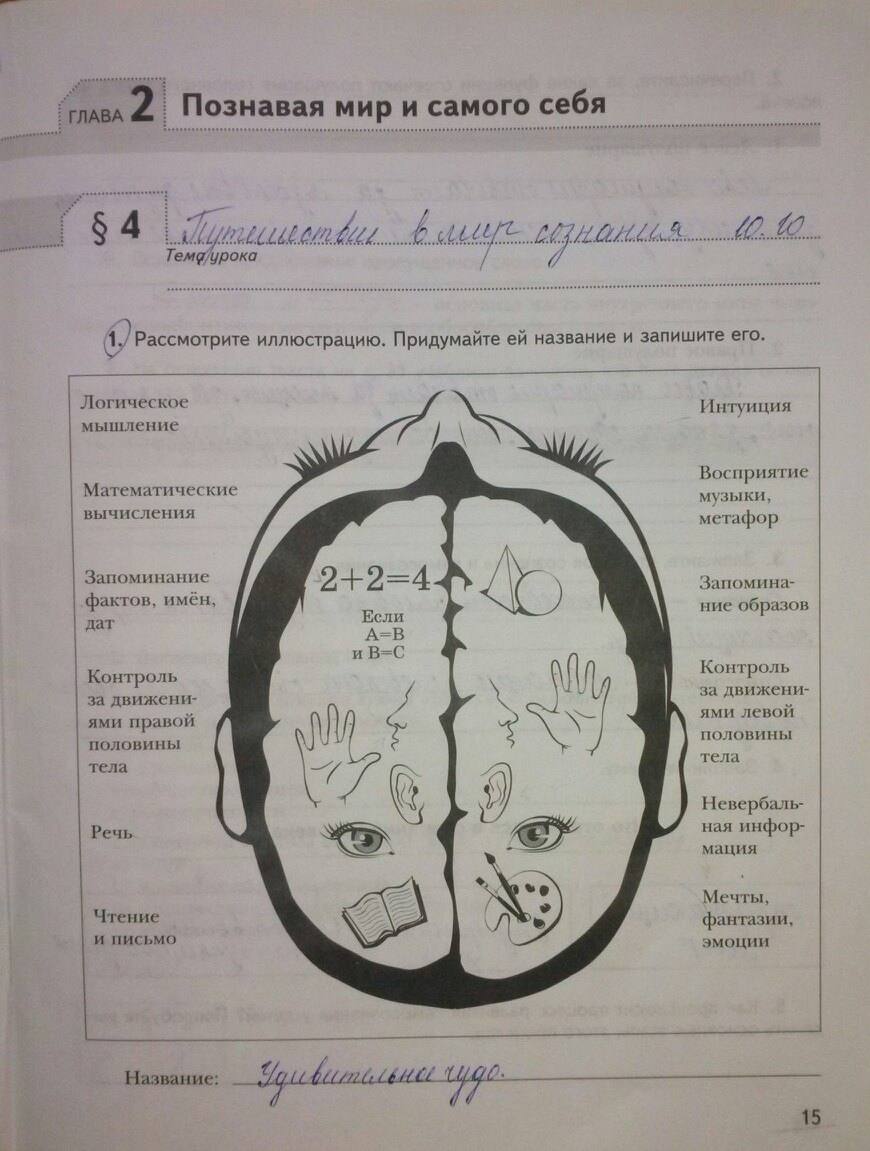 ГЛАВА 2 Познавая мир и самого себя
§ 4 Путешествие в мир сознания 10.10
Тема урока
1. Рассмотрите иллюстрацию. Придумайте ей название и запишите его.
Логическое
мышление
Математические
вычисления
Запоминание
фактов, имён,
дат
Контроль
за движени-
ями правой
половины
тела
Речь
Чтение
и письмо
2+2=4
Если
A=B
и B=C
Интуиция
Восприятие
музыки,
метафор
Запомина-
ние образов
Контроль
за движени-
ями левой
половины
тела
Невербаль-
ная инфор-
мация
Мечты,
фантазии,
эмоции
Название: Удивительное чудо.
15